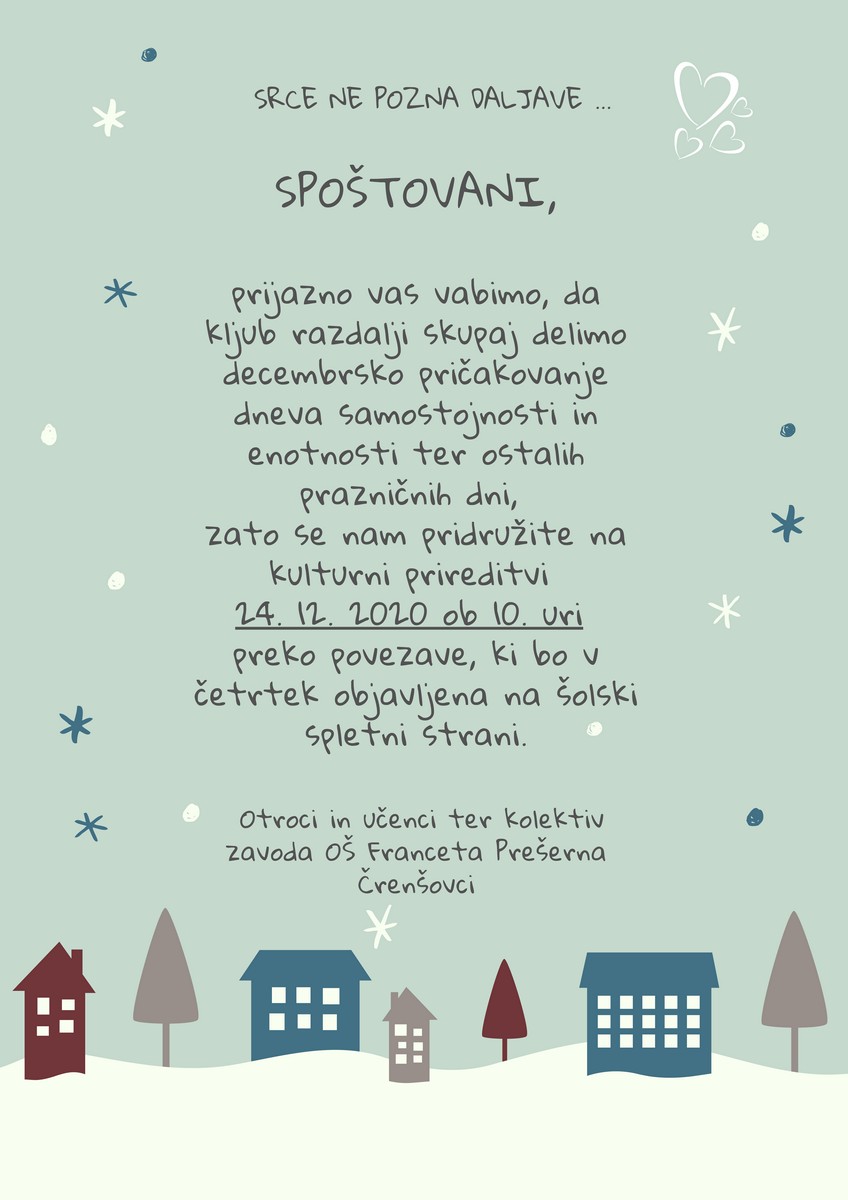 SRCE NE POZNA DALJAVE ...
SPOŠTOVANI,
prijazno vas vabimo, da
kljub razdalji skupaj delimo
decembrsko pričakovanje
dneva samostojnosti in
enotnosti ter ostalih
prazničnih dni,
zato se nam pridružite na
kulturni prireditvi
24. 12. 2020 ob 10. uri
preko povezave, ki bo v
četrtek objavljena na šolski
spletni strani.
Otroci in učenci ter kolektiv
zavoda OŠ Franceta Prešerna
Črenšovci